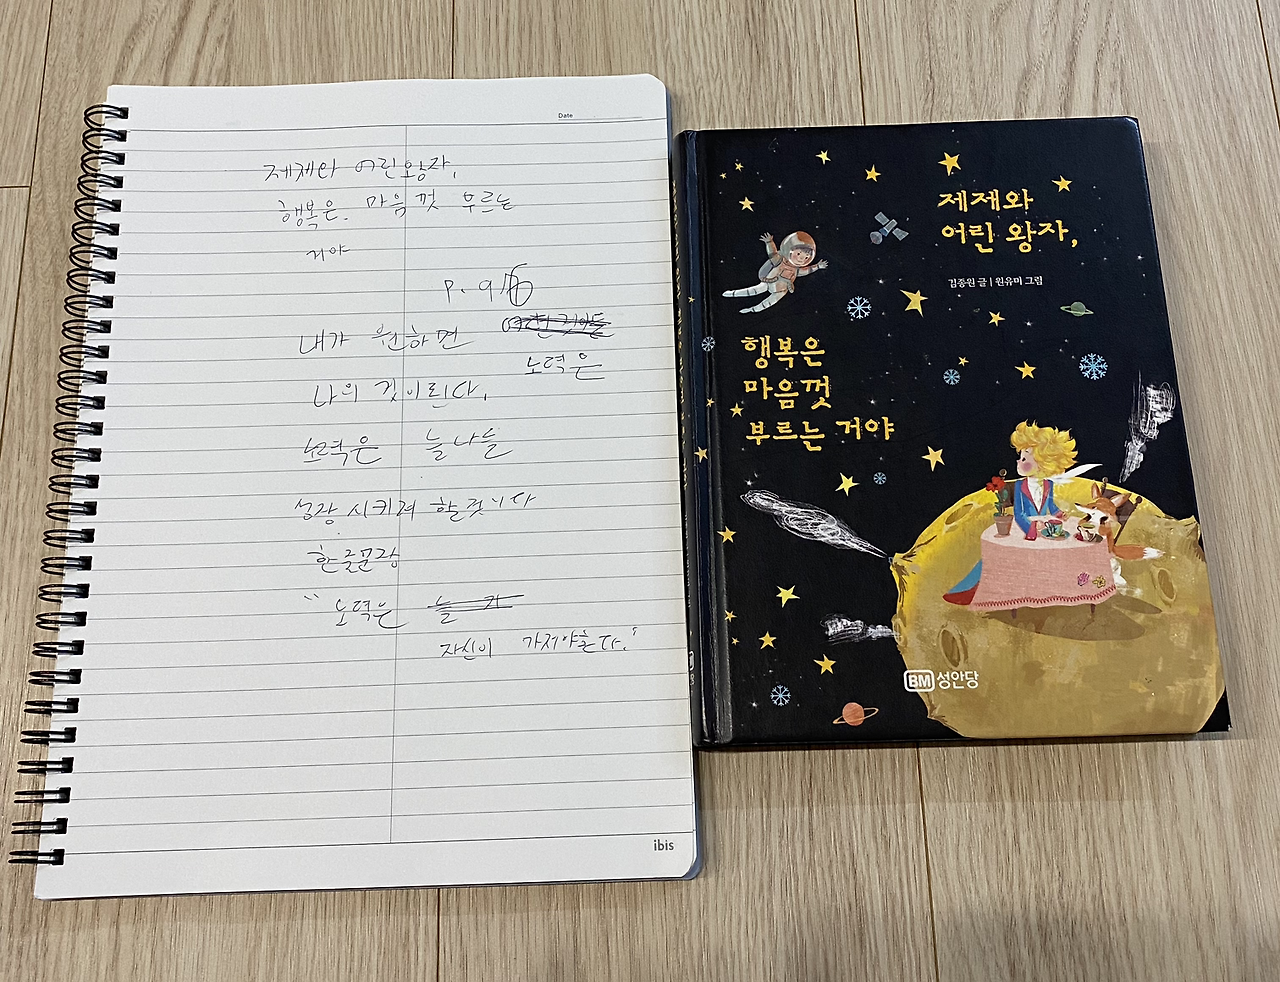 Date
제제와 어린왕자,
행복은 마음껏 부르는
거야
p. 96
내가 원하면
노력은
나의 것이린다,
노력은 늘 나를
성장 시키려 할것니다
한글문장
" 노력은 늘 가
자신이 가져야한다."
ibis
제제와
어린 왕자,
김종원 글 | 원유미 그림
행복은
마음껏
부르는 거야
BM 성안당